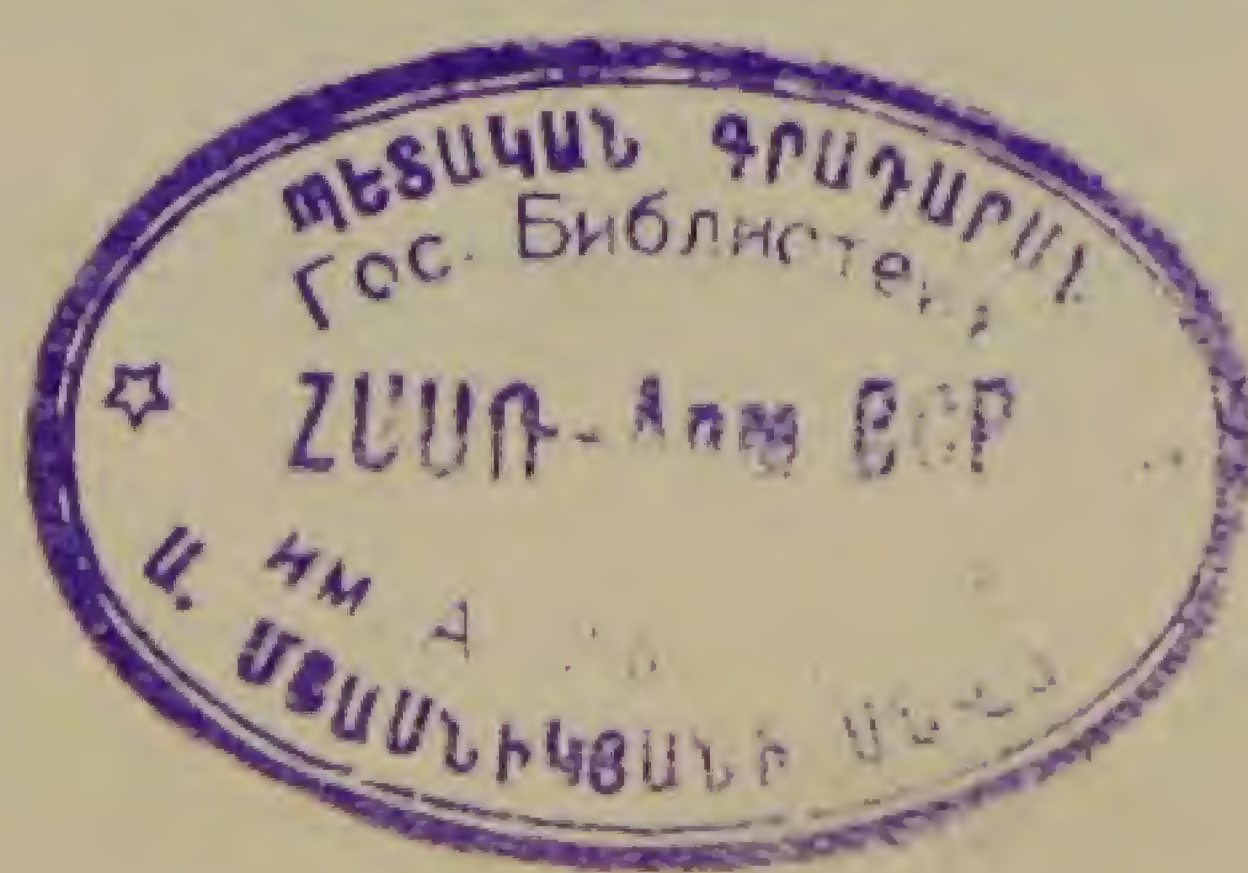 ՊԵՏԱԿԱՆ ԳՐԱԴԱՐԱՆ
Гос. Библиотека
ՀՍՍՌ-
ССР
им А
Ա. ՄՅԱՍՆԻԿՅԱՆԻ